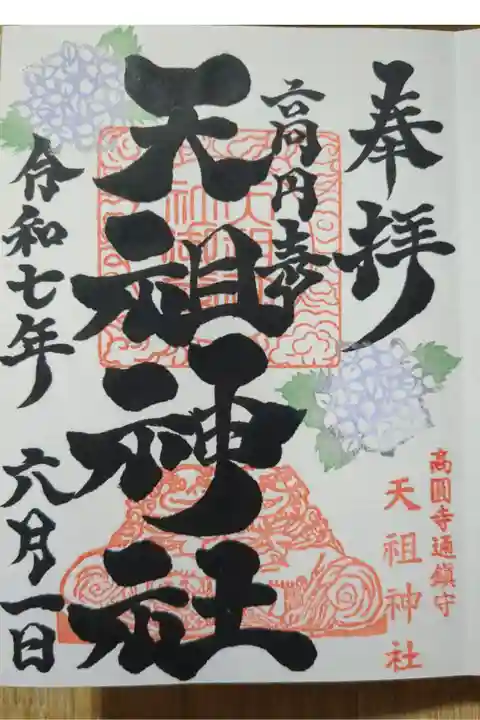 奉拝
高円寺
天祖神社
令和七年
六月一日
高圓寺通鎮守
天祖神社